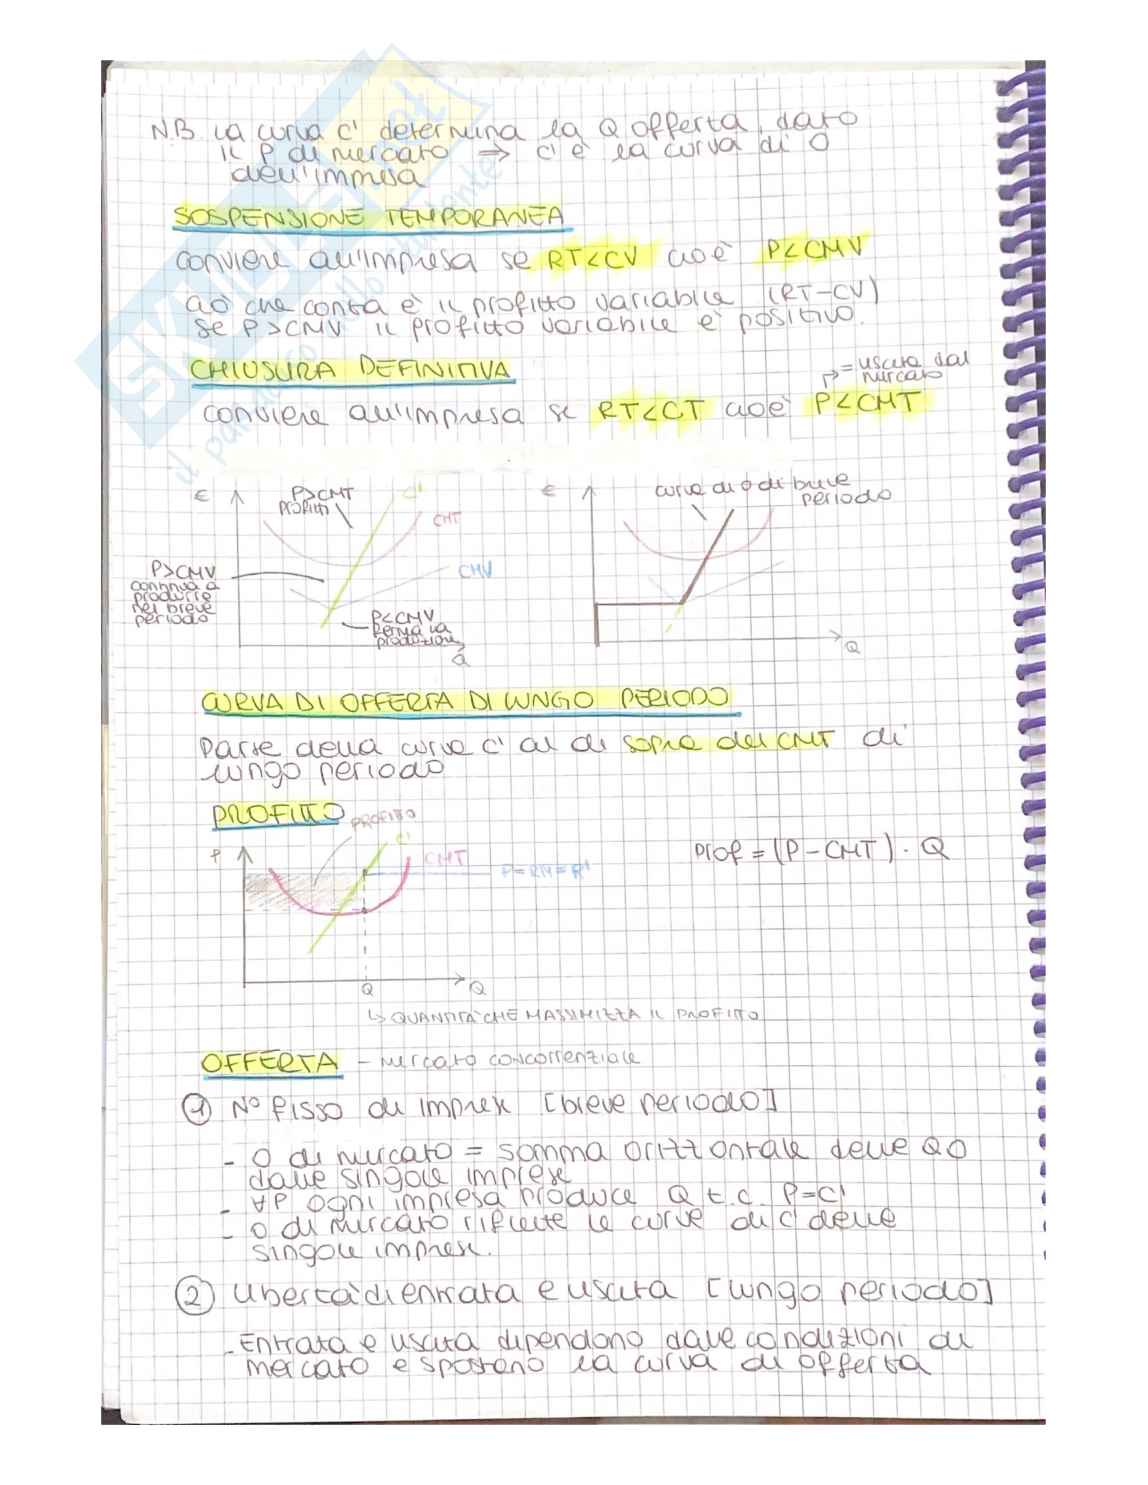 N.B. La curva C' determina la Q offerta, dato
il P di mercato → C' è la curva di O
dell'impresa
SOSPENSIONE TEMPORANEA
conviene all'impresa se RT<CV cioè P<CMV
ciò che conta è il profitto variabile (RT-CV)
se P>CMV il profitto variabile è positivo.
CHIUSURA DEFINITIVA
= uscita dal
mercato
conviene all'impresa se RT<CT cioè P<CMT
€
P>CMT
profitti
C'
CMT
CMV
P>CMV
continua a
produrre
nel breve
periodo
P<CMV
ferma la
produzione
Q
€
curva di O di breve
periodo
Q
CURVA DI OFFERTA DI LUNGO PERIODO
Parte della curva C' al di sopra del CMT di
lungo periodo
PROFITTO
PROFITTO
P
C'
CMT
P=RM=R'
Prof = (P - CMT) · Q
Q
Q
↳ QUANTITÀ CHE MASSIMIZZA IL PROFITTO
OFFERTA - mercato concorrenziale
1 N° fisso di imprese [breve periodo]
- O di mercato = somma orizzontale delle QO
dalle singole imprese
- ∀P ogni impresa produce Q t.c. P=C'
- O di mercato riflette le curve di C' delle
singole imprese.
2 Libertà di entrata e uscita [lungo periodo]
- Entrata e uscita dipendono dalle condizioni di
mercato e spostano la curva di offerta